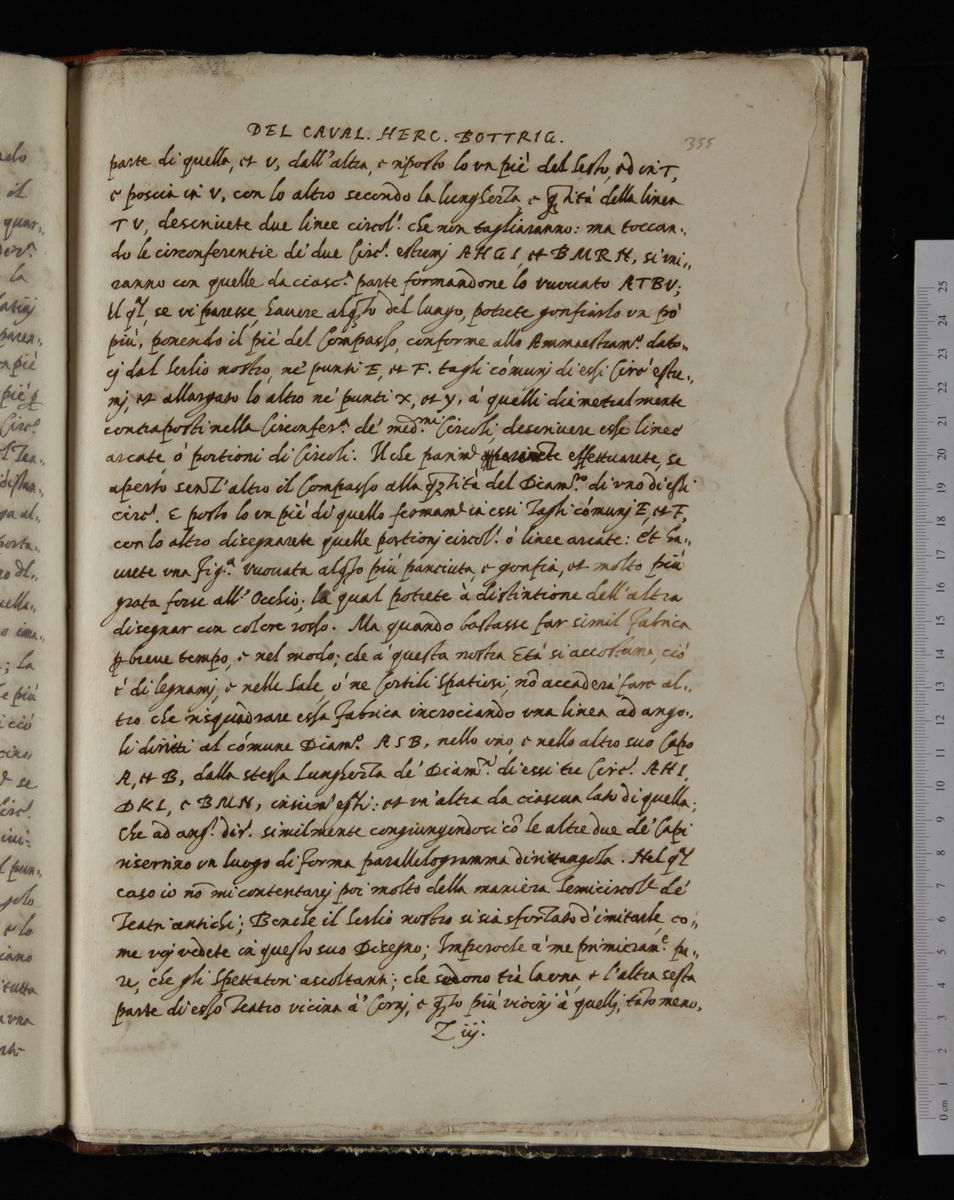 DEL CAVAL. HERC. BOTTRIG.
355
parte di quella, et V, dall'altra, e riposto lo un piè del Sesto, ed in T,
e poscia in V, con lo altro secondo la lunghezza, e q̃tità della linea
T V, descrivete due linee circol.ⁱ che non tagliaranno: ma toccan-,
do le circonferentie de' due Circ.ⁱ estremj AHGI, et BMRN, si uni-,
ranno con quelle da ciasc.ᵃ parte formandone lo vuouato ATBV;
Il q̃l, se vi paresse havere alq̃to del lungo, potrete gonfiarlo un pò
più, ponendo il piè del Compasso, conforme allo Ammaestram.º dato-,
cj dal Serlio nostro, ne' punti E, et F. tagli cómunj di essi Circ.ⁱ estre-,
mj, et allargato lo altro ne' punti X, et Y, à quelli diametralmente
contraposti nella Circonfer.ᵃ de' med.ᵐⁱ Circoli, descrivere esse linee
arcate, ò portioni di Circoli. Il che parim.ᵉ effettuarete, se
aperto senz'altro il Compasso alla q̃tità del Diam.ʳº di uno di essi
circ.ⁱ E posto lo un piè di quello fermam.ᵉ in essi Tagli cómunj E, et F,
con lo altro disegnarete quelle portionj circol.ⁱ ò linee arcate: Et ha-,
urete una fig.ᵃ vuouata alq̃to più panciuta, e gonfia, et molto più
grata forse all'Occhio; la qual potrete à distintione dell'altra
disegnar con colore rosso. Ma quando bastasse far simil fabrica
ꝑ breve tempo, e nel modo; che à questa nostra Età si accostuma, ciò
è di legnamj, e nelle Sale, ò ne Cortili spatiosi, nõ accaderà fare al-,
tro che risquadrare essa fabrica incrociando una linea ad ango-,
li diritti al cómune Diam.º ASB, nello uno, e nello altro suo Capo
A, et B, dalla stessa Lunghezza de' Diam.ʳⁱ di essi tre Circ.ⁱ AHI,
DKL, e BMN, insiem' essi: et un'altra da ciascun lato di quella;
Che ad ang.ⁱ dir.ⁱ similmente congiungendoci cõ le altre due de' Capi
riserrino un luogo di forma parallilogramma dirittangola. Nel q̃l
caso io nõ mi contentarej poi molto della maniera Semicircol.ᵉ de'
Teatri antichi; Benche il Serlio nostro si sia sforzato d'imitarle, co-,
me voj vedete in questo suo Disegno; Imperoche à me primieram.ᵉ pa-,
re, che gli Spettatori ascoltanti; che sedono trà la una, e l'altra sesta
parte di esso Teatro vicina à Cornj, e q̃to più vicinj à quellj, tãto meno,
Z iij.